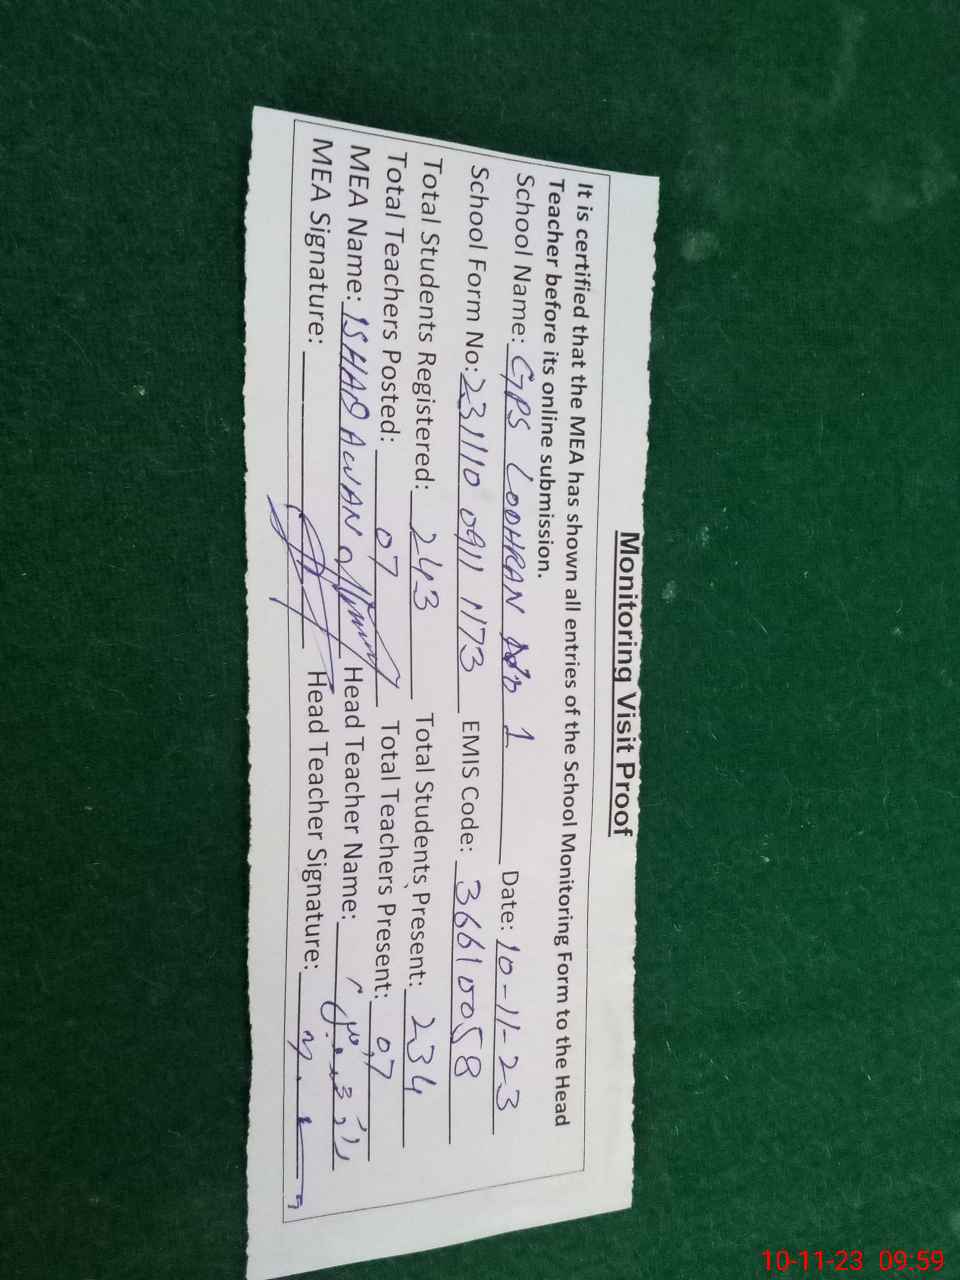 Monitoring Visit Proof
It is certified that the MEA has shown all entries of the School Monitoring Form to the Head
Teacher before its online submission.
School Name: GPS LODHRAN No 1 Date: 10-11-23
School Form No: 231110 0911 1173 EMIS Code: 36610058
Total Students Registered: 243 Total Students Present: 234
Total Teachers Posted: 07 Total Teachers Present: 07
MEA Name: ISHAQ AWAN Head Teacher Name:
MEA Signature: Head Teacher Signature:
10-11-23 09:59